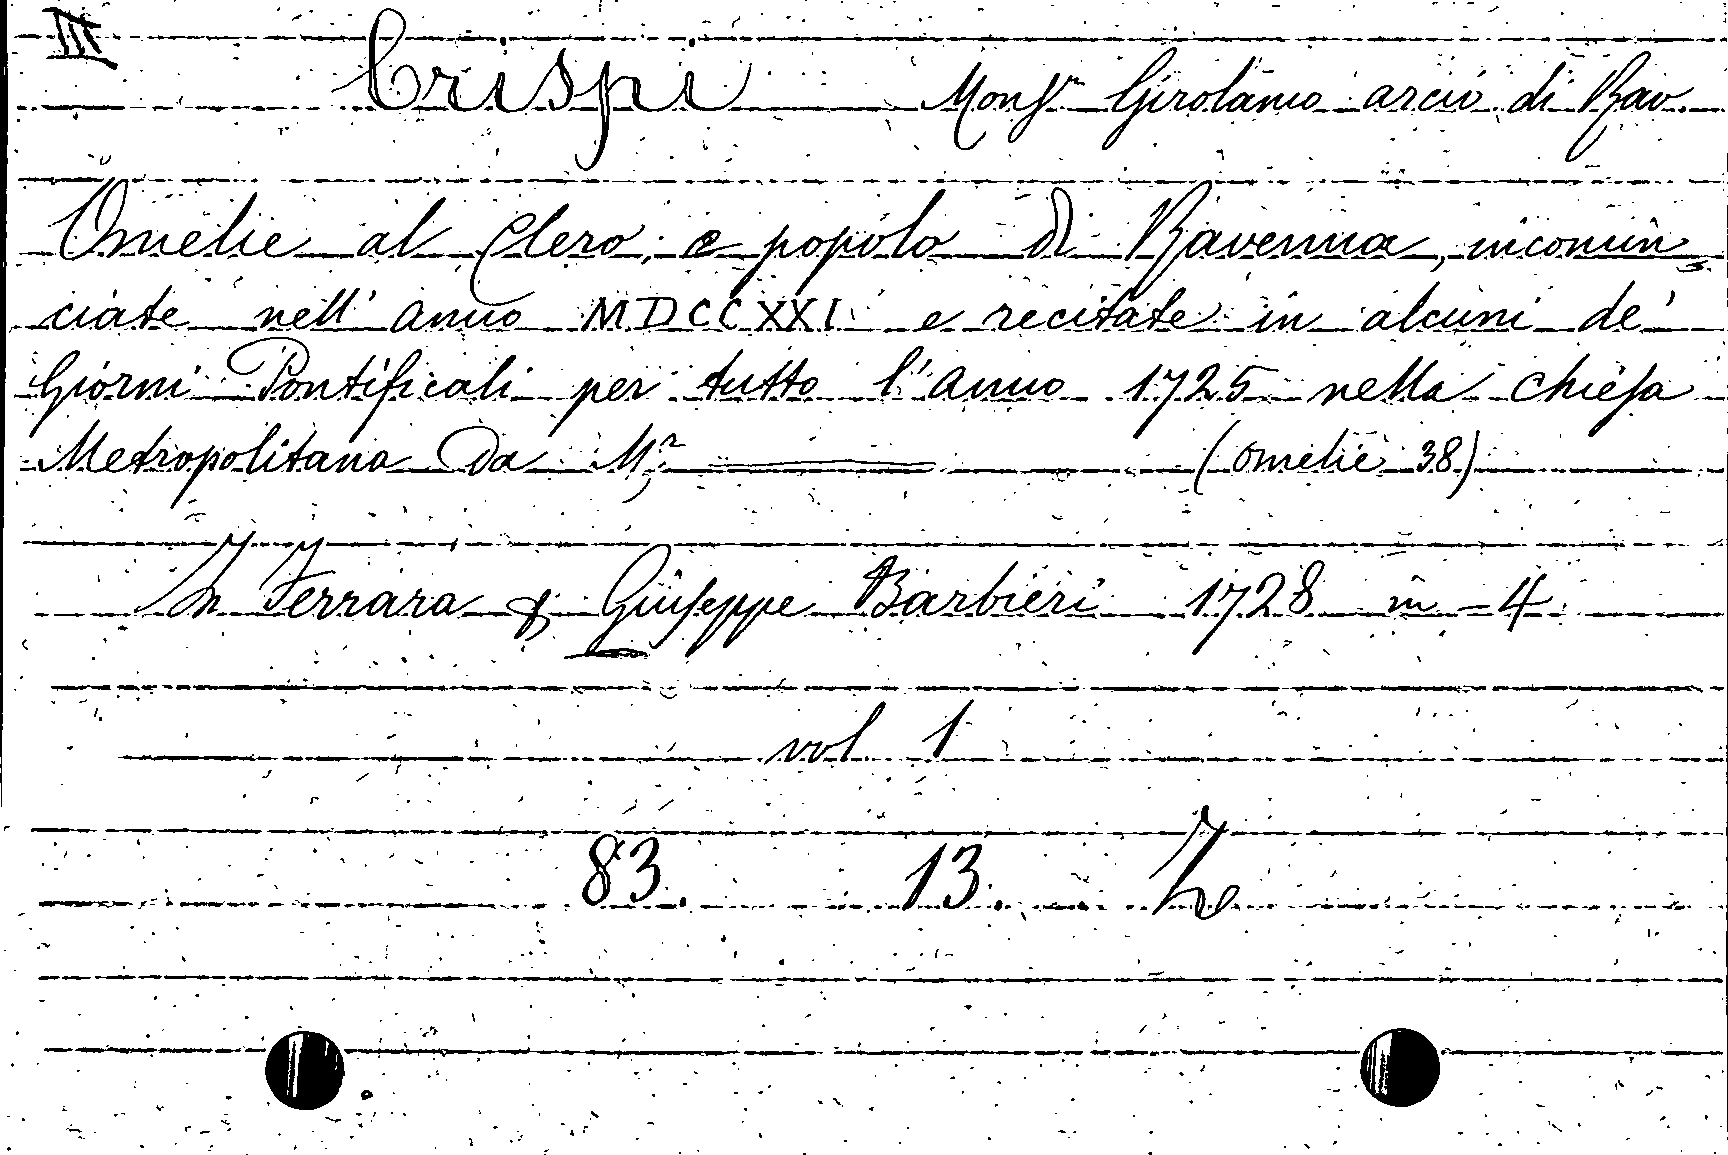 III
Crispi Monsr Girolamo arciv di Rav.
Omelie al Clero, e popolo di Ravenna, incomin=
ciate nell' anno MDCCXXI e recitate in alcuni de'
Giorni Pontificali per tutto l'anno 1725 nella chiesa
Metropolitana da Mr (omelie 38)
In Ferrara p Giuseppe Barbieri 1728 in-4
vol 1
83. 13. Z